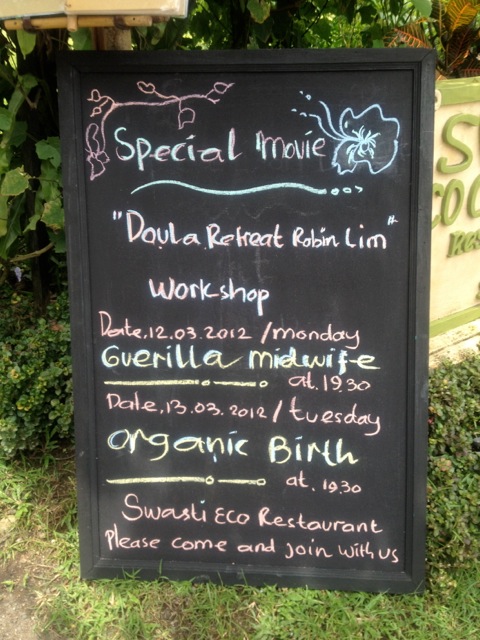 Special Movie
"Doula Retreat Robin Lim"
Workshop
Date, 12.03.2012 / monday
Guerilla midwife
at. 19.30
Date, 13.03.2012 / tuesday
organic Birth
at. 19.30
Swasti Eco Restaurant
Please come and join with us